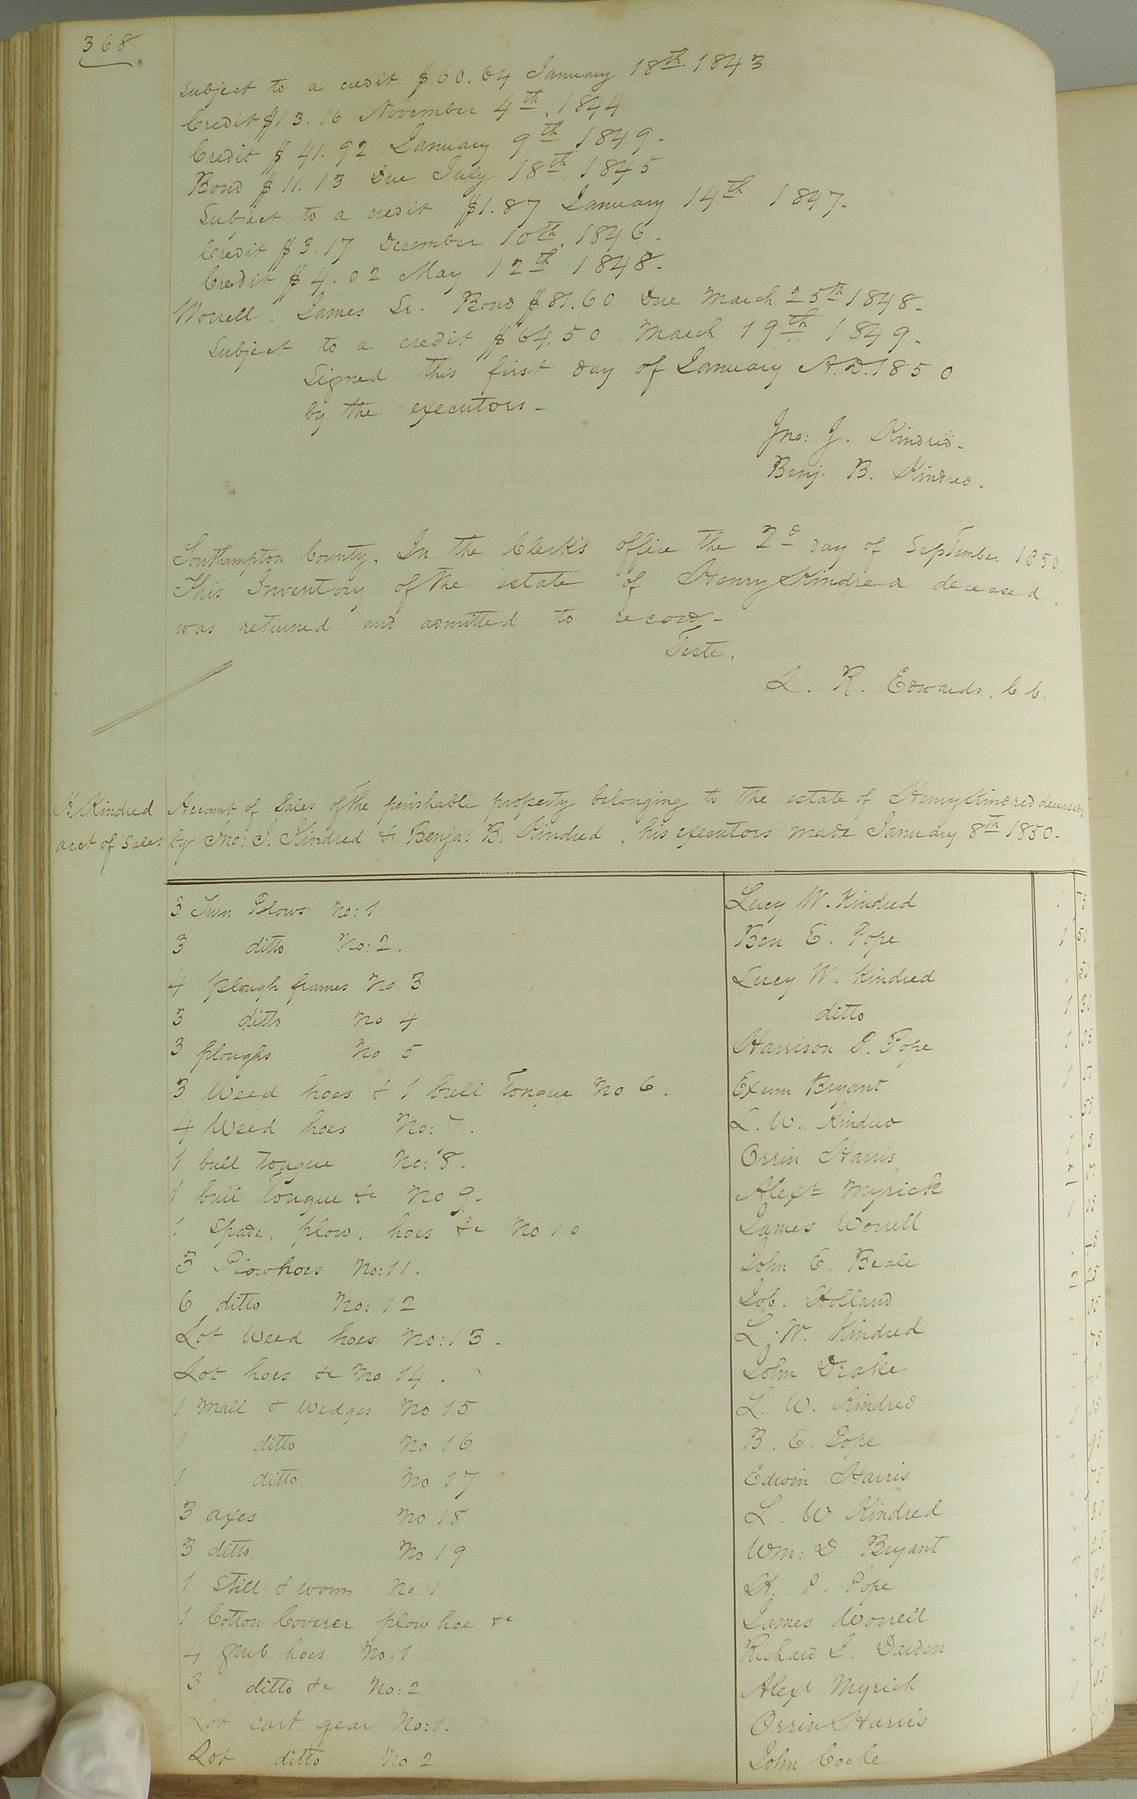 368
Subject to a credit $60.64 January 18th 1843
Credit $13.16 November 4th, 1844
Credit $41.92 January 9th 1849-
Bond $11.13 Due July 18th 1845
Subject to a credit $1.87 January 14th 1847-
Credit $3.17 December 10th, 1846-
Credit $4.02 May 12th 1848-
Worrell. James Sr. Bond $81.60 Due March 25th 1848-
Subject to a credit $64.50 March 19th 1849-
Signed this first day of January A.D. 1850
by the executors-
Jno: J. Kindred-
Benj. B. Kindred.
Southampton County. In the Clerk's office the 2d day of September 1850.
This Inventory of the estate of Henry Kindred deceased,
was returned and admitted to record-
Teste.
L. R. Edwards. C C.
H. Kindred
acct of Sales
Account of Sales of the perishable property belonging to the estate of Henry Kindred deceased
by Jno: J. Kindred & Benja: B. Kindred, his executors made January 8th 1850-
3 Turn Plows No: 1 Lucy W. Kindred
3 ditto No: 2. Ben E. Pope 1 50
4 plough frames No 3 Lucy W. Kindred
3 ditto No 4 ditto 1
3 ploughs No 5 Harrison P. Pope 1
3 Weed hoes & 1 bull tongue No 6. Exum Bryant 1
4 Weed hoes No: 7. L. W. Kindred 55
1 bull tongue No: 8. Orrin Harris 1
1 bull tongue &c No 9- Alexr Myrick
1 Spade, plow, hoes &c No 10 James Worrell 1
3 Plowhoes No: 11. John E. Beale
6 ditto No: 12 Job. Holland 2 25
Lot Weed hoes No: 13- L. W. Kindred
Lot hoes &c No 14. John Drake 75
1 Mall & Wedges No 15 L. W. Kindred
1 ditto No 16 B. E. Pope 1
1 ditto No 17 Edwin Harris 95
3 axes No 18 L. W Kindred 75
3 ditto No 19 Wm: D. Bryant
1 Still & worm No 1 H. P. Pope
1 Cotton Coverer plow hoe &c James Worrell
4 grub hoes No: 1 Richard L. Darden
3 ditto &c No: 2 Alexr Myrick
Lot cart gear No: 1. Orrin Harris 1 05
Lot ditto No 2 John Cocke